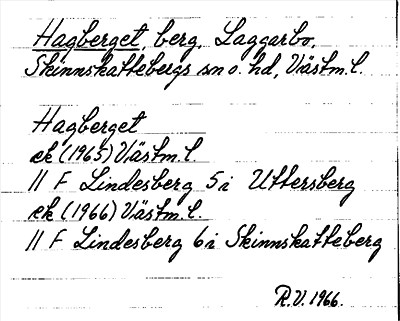 Hagberget, berg, Laggarbo,
Skinnskattebergs sn o. hd, Västm. l.
Hagberget
ek (1965) Västm. l.
11 F Lindesberg 5 i Uttersberg
ek (1966) Västm. l.
11 F Lindesberg 6 i Skinnskatteberg
R.V. 1966.